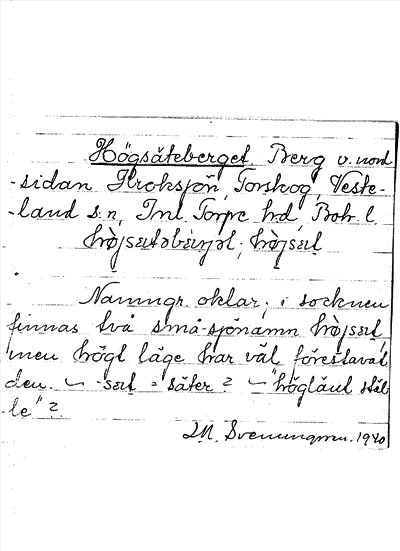 Högsäteberget. Berg v. nord
-sidan Kroksjön, Torskog, Veste-
-land s:n, Inl. Torpe hd, Boh. l.
Namngr. oklar; i socknen
finnas två små-sjönamn
men högt läge har väl förestavat
den. = säter? "högländ stäl-
le"?
Svenningson. 1940